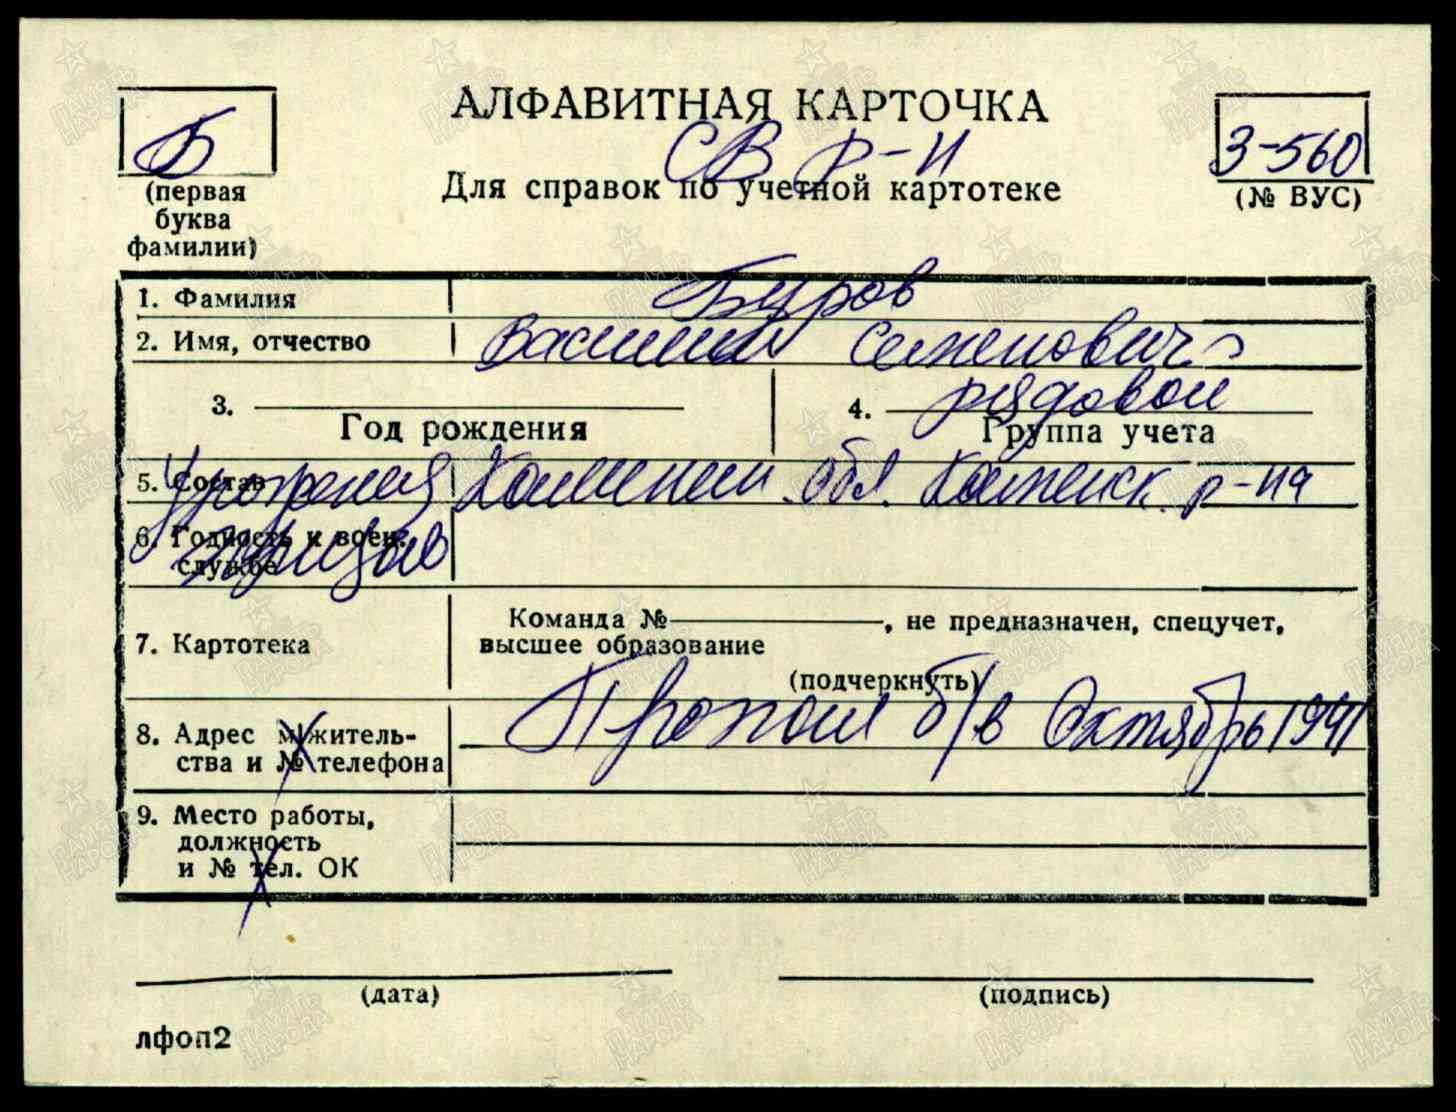 АЛФАВИТНАЯ КАРТОЧКА
Б
СВ р-н
3-560
(первая буква фамилии)
Для справок по учетной картотеке
(№ ВУС)
1. Фамилия Буров
2. Имя, отчество Василий Семенович
3. Год рождения
4. рядовой
Группа учета
5. Состав Калинин. обл. Каменск. р-на
уроженец
6. Годность к воен. службе
призыв
7. Картотека
Команда № , не предназначен, спецучет,
высшее образование
(подчеркнуть)
8. Адрес м/житель-
ства и № телефона
Пропал б/в Октябрь 1941
9. Место работы,
должность
и № тел. ОК
(дата)
(подпись)
лфоп2
ПАМЯТЬ НАРОДА